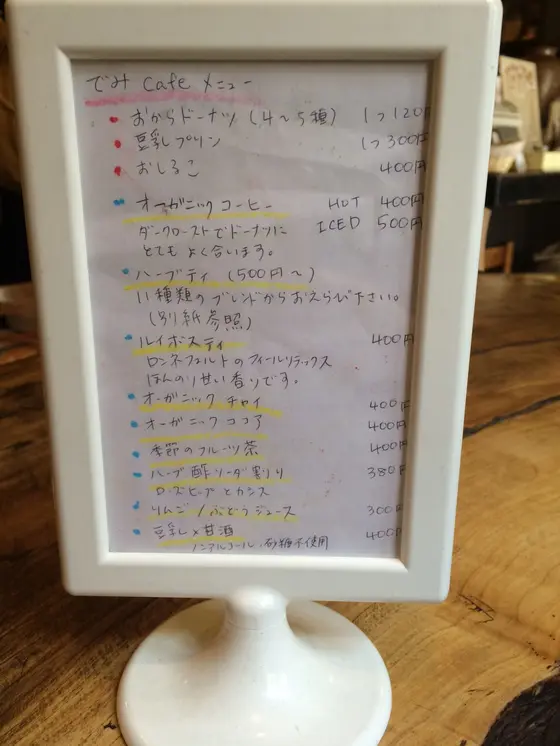 でみ cafe メニュー
・おからドーナツ（4〜5種） 1つ120円
・豆乳プリン 1つ300円
・おしるこ 400円
・オーガニックコーヒー HOT 400円
ダークローストでドーナツに ICED 500円
とてもよく合います。
・ハーブティ（500円〜）
11種類のブレンドからおえらび下さい。
（別紙参照）
・ルイボスティ 400円
ロンネフェルトのフィールリラックス
ほんのり甘い香りです。
・オーガニック チャイ 400円
・オーガニックココア 400円
・季節のフルーツ茶 400円
・ハーブ酢ソーダ割り 380円
ローズヒップとカシス
・りんご/ぶどうジュース 300円
・豆乳×甘酒 400円
ノンアルコール、砂糖不使用